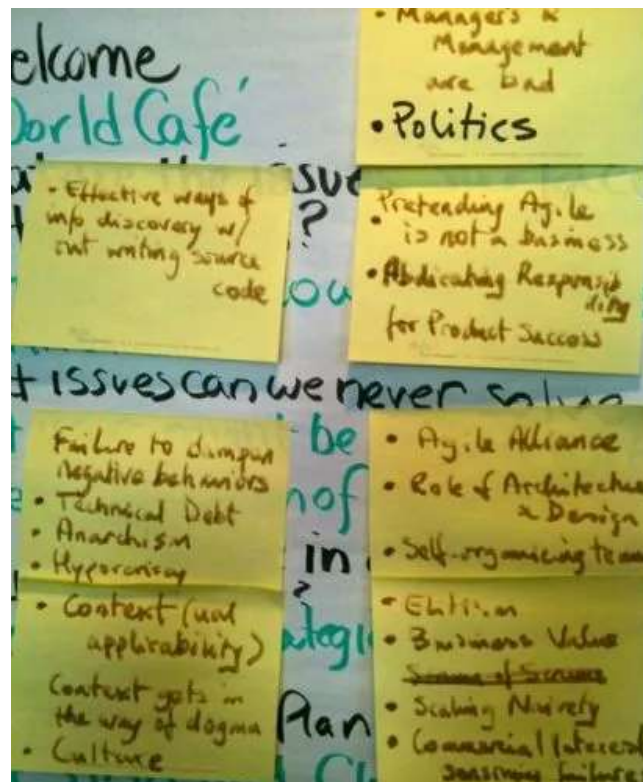 elcome
World Café
issue
?
• Managers &
Management
are bad
• Politics
• Effective ways of
info discovery w/
out writing source
code
• Pretending Agile
is not a business
• Abdicating Responsib
ility
for Product Success
ou
t issues can we never solve
be
Failure to dampen
negative behaviors
• Technical Debt
• Anarchism
• Hypocrisy
• Context (and
applicability)
Context gets in
the way of dogma
• Culture
of
in
?
ategi
Plan
• Agile Alliance
• Role of Architecture
& Design
• Self-organizing team
• Elitism
• Business Value
Scrum of Scrums
• Scaling Nivrety
• Commercial Interest